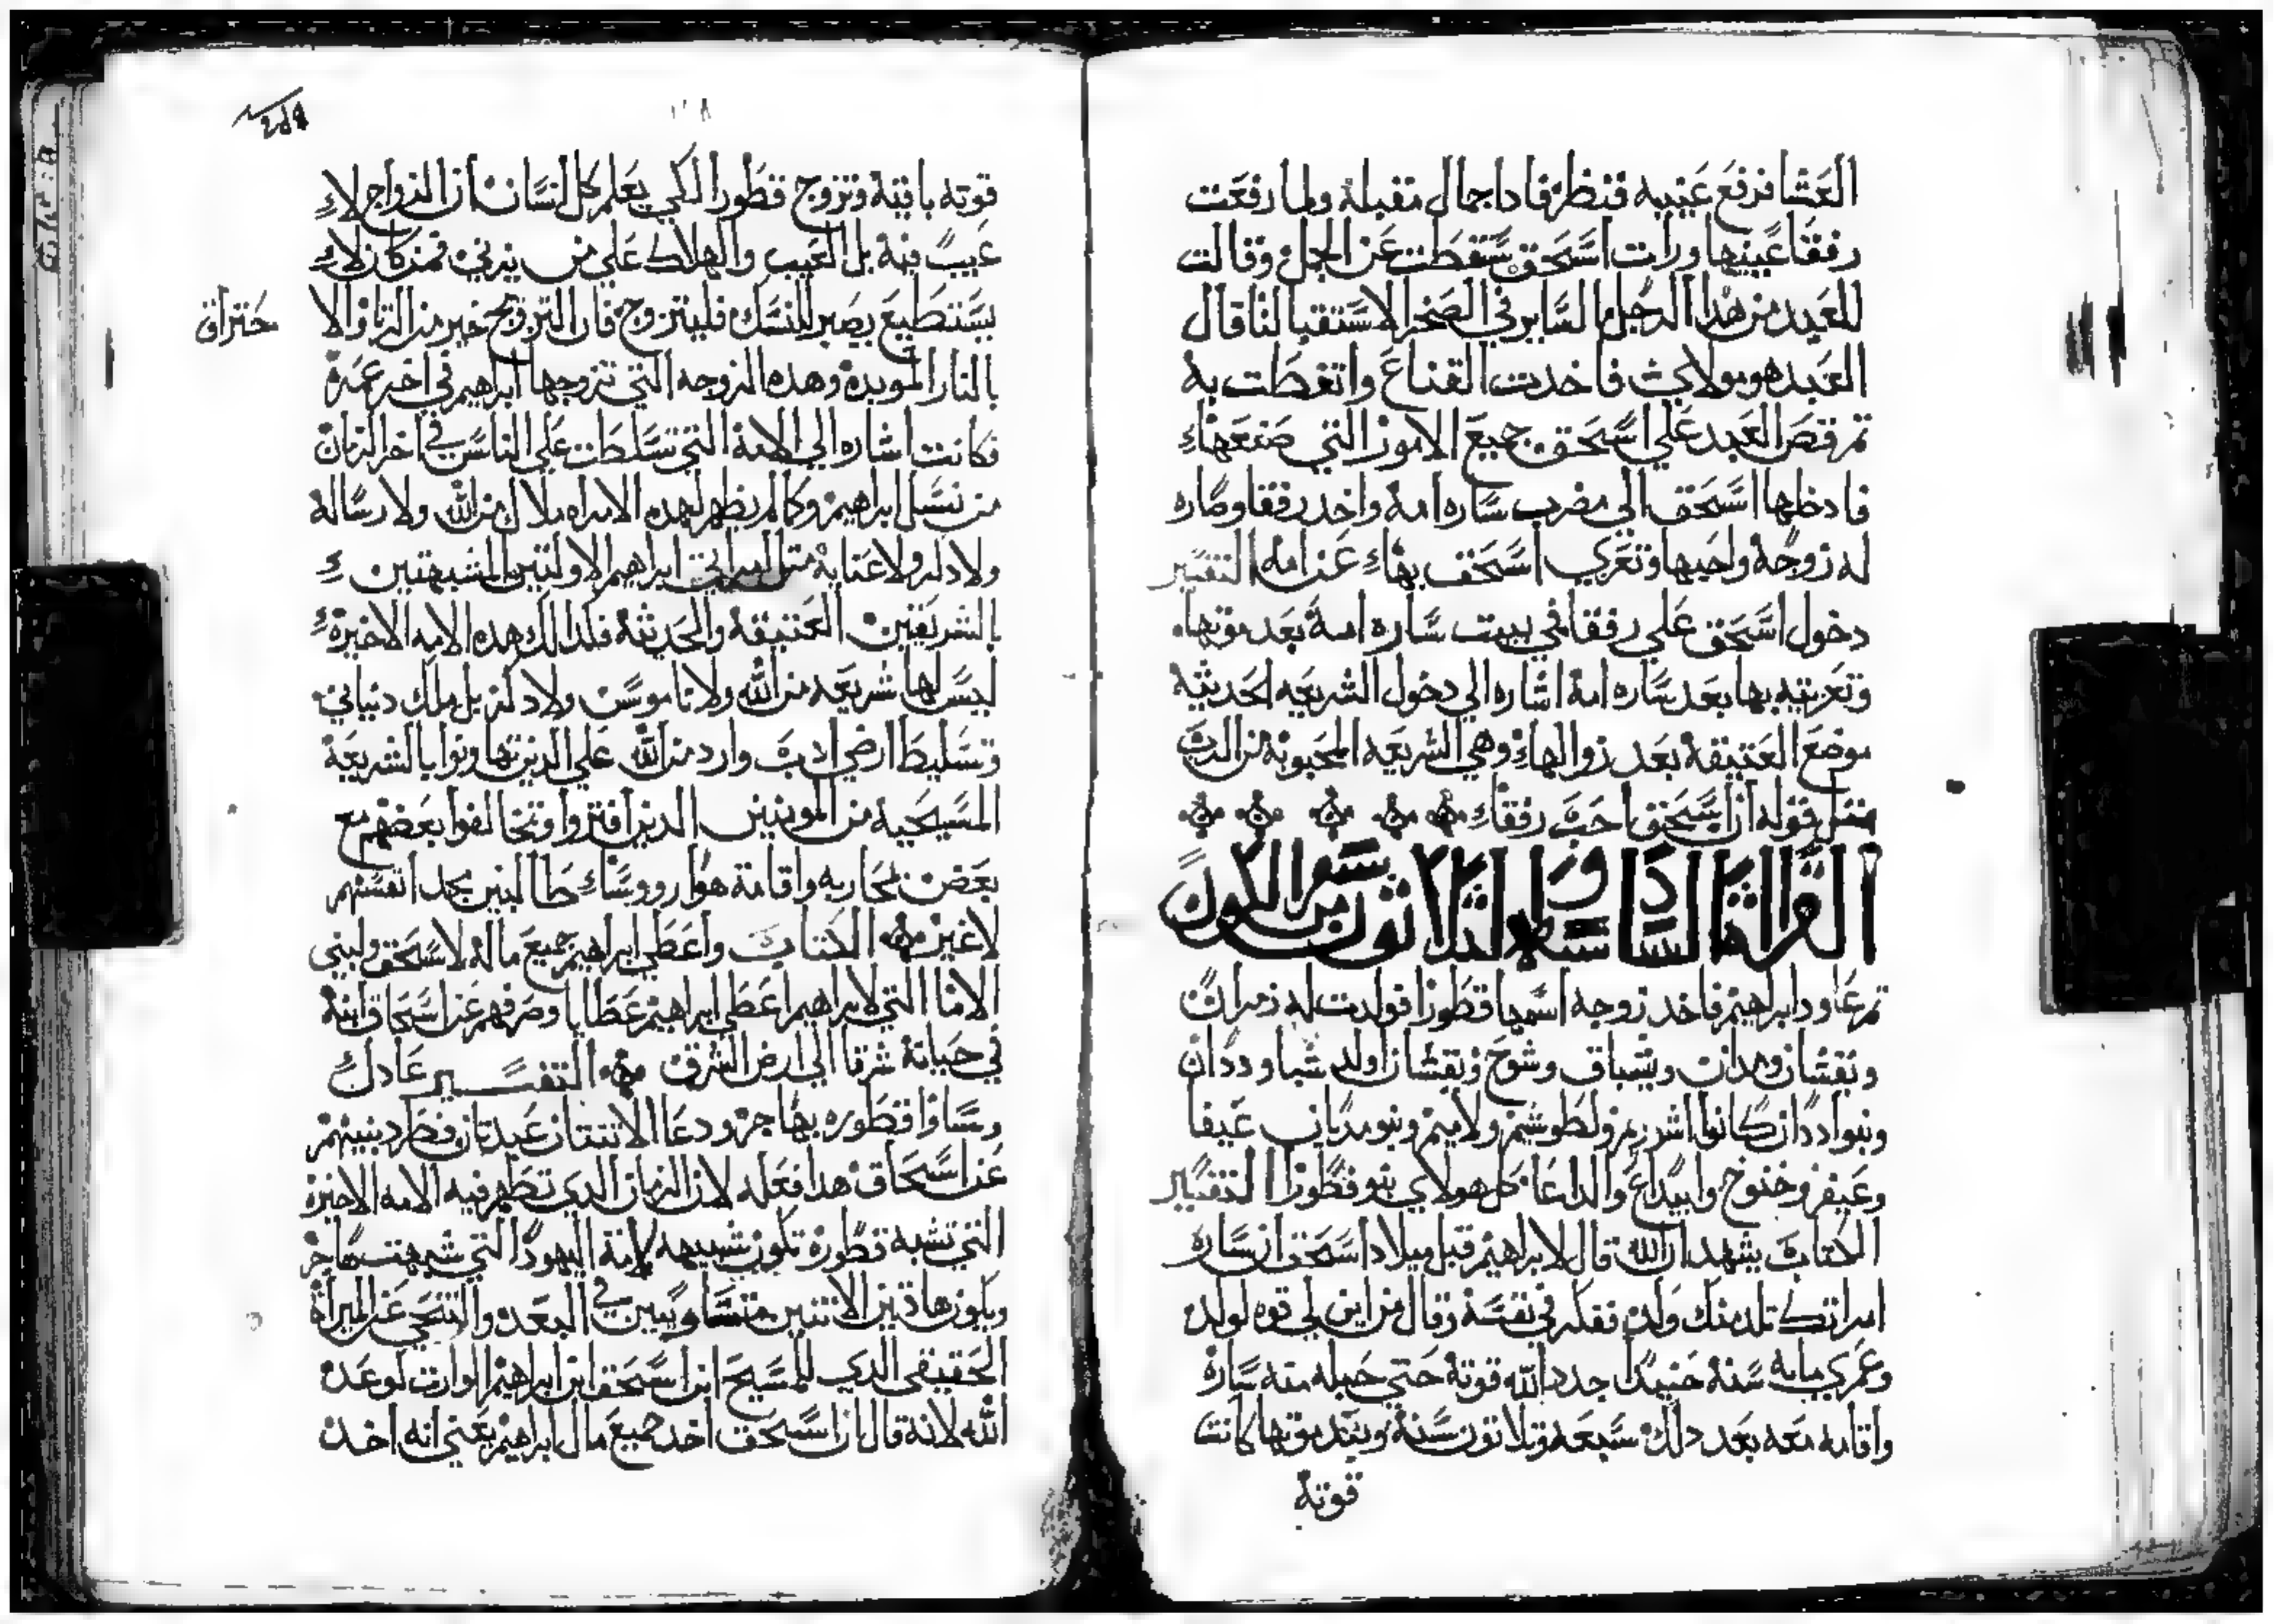 العشا فرفع عينيه فنظر فادا جمال مقبلة ولما رفعت
رفقا عينيها ورات اسحق سقطت عن الجمل وقالت
للعبد من هدا الرجل الساير في الصحرا لاستقبالنا قال
العبد هو مولاي فاخدت القناع واتغطت به
تم قص العبد علي اسحق جميع الامور التي صنعها
فادخلها اسحق الي مضرب ساره امه واخد رفقا وصاره
له زوجة واحبها وتعزي اسحق بها عن امه التفسير
دخول اسحق علي رفقا في بيت ساره امه بعد موتها
وتعزيته بها بعد ساره امه اشاره الي دخول الشريعه الحديثه
موضع العتيقة بعد زوالها وهي الشريعه المحبوبة من الدين
متل قوله ان اسحق احب رفقا
القراة السادسة والتلاتون من سفر الكون ٣٢
تم عاود ابراهيم فاخد زوجه اسمها قطورا فولدت له زمران
ونقشان ومدان ويشباق وشوح ونقشان اولد شبا وددان
وبنوا ددان كانوا اشوريم ولطوشيم ولاميم وبنو مديان عيفا
وعيفر وخنوخ وابيداع والداعا كل هولاي بنو قطورا التفسير
الكتاب يشهد ان الله قال لابراهيم قبل ميلاد اسحق ان ساره
امراتك تلد منك ولد ففكر في نفسه وقال من اين لي قوه لولد
وعمري مايه سنة حنيدا جدد الله قوتة حتي حبله منه سارة
واقامه معه بعد دلك سبعه وتلاتون سنة وبعد موتها كانت
قوتة
قوته باقية وتزوج قطورا لكي يعلم كل انسان ان الزواج لا
عيب فية بل العيب والهلاك علي من يزني فمن كان لا
يستطيع يصير للنسك فليتزوج فان التزويج خير من الزنا والا
حتراق
بالنار الموبدة وهده الزوجه التي تزوجها ابراهيم في اخر عمرة
فكانت اشاره الي الامة التي تسلطت علي الناس في اخر الزمان
من نسل ابراهيم وكما لم يظهر لهده الامراه ملاك من الله ولا رساله
ولا دكر ولا عنايه متل امراتي ابراهيم الاولتين المشبهتين
بالشريعتين العتيقة والحديثة فلدالك هده الامه الاخيرة
ليس لها شريعه من الله ولا ناموس ولا دكر بل ملك دنياني
وتسليط ارضي ادب وارد من الله علي الدين تهاونوا بالشريعة
المسيحية من المومنين الدين افتروا وتخالفوا بعضهم مع
بعض لمحاربه واقامة هوا رووسا طالبين مجد انفسهم
لا غير الكتاب واعطي ابراهيم جميع ماله لاسحق ولبني
الاما التي لابراهيم اعطي ابراهيم عطايا وصرفهم عن اسحاق ابنة
في حياتة شرقا الي ارض الشرق التفسير عادل
وساوا قطوره بهاجر ودعا الاتنتان عبدتان فطرد بنيهم
عن اسحاق هدا فعله لان الزمان الدي تظهر فيه الامه الاخيرة
التي تشبه قطورة تكون شبيهه لامة اليهود التي شبهت بهاجر
ويكون هاذين الاتنتين متساويين في البعد والتنحي عن الميرات
الحقيقي الدي للمسيح ابن اسحق ابن ابراهيم الوارت لوعد
الله لانة قال ان اسحق اخد جميع مال ابراهيم يعني انه اخد